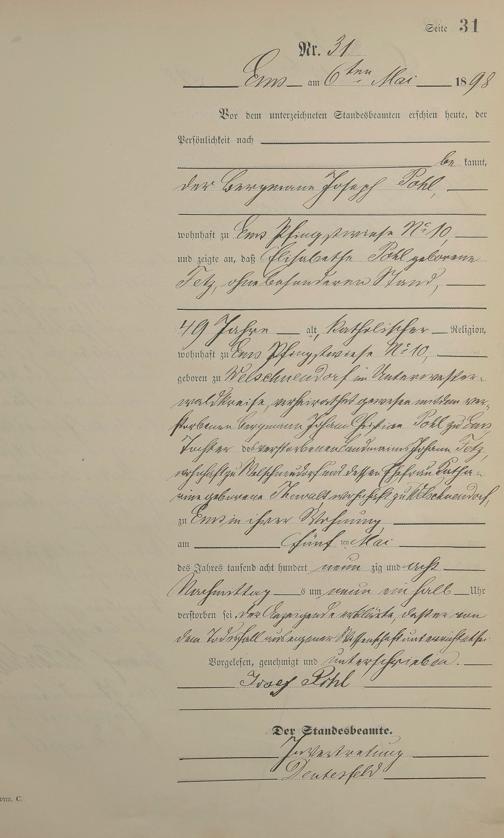 Seite 31
Nr. 31
Ems am 6ten Mai 1898
Vor dem unterzeichneten Standesbeamten erschien heute, der
Persönlichkeit nach
be kannt,
der Bergmann Joseph Pohl,
wohnhaft zu Ems Pfingstwiese No 10,
und zeigte an, daß Elisabetha Pohl geborene
Fetz, ohne besonderen Stand,
49 Jahre alt, katholischer Religion,
wohnhaft zu Ems Pfingstwiese No 10,
geboren zu Welschneudorf im Unterwester-
waldkreise, verheirathet gewesen mit dem ver-
storbenen Bergmann Johann Pohl zu Ems
Tochter des verstorbenen Landmanns Johann Fetz
wohnhaft zu Welschneudorf und dessen Ehefrau Katha-
rina geborene wohnhaft zu Welschneudorf,
zu Ems in ihrer Wohnung
am fünf ten Mai
des Jahres tausend acht hundert neun zig und acht
Nachmittag s um neun ein halb Uhr
verstorben sei. Der Anzeigende erklärte, daß er von
dem Todesfall aus eigener Wissenschaft unterrichtet sei.
Vorgelesen, genehmigt und unterschrieben.
Josef Pohl
Der Standesbeamte.
In Vertretung
C.